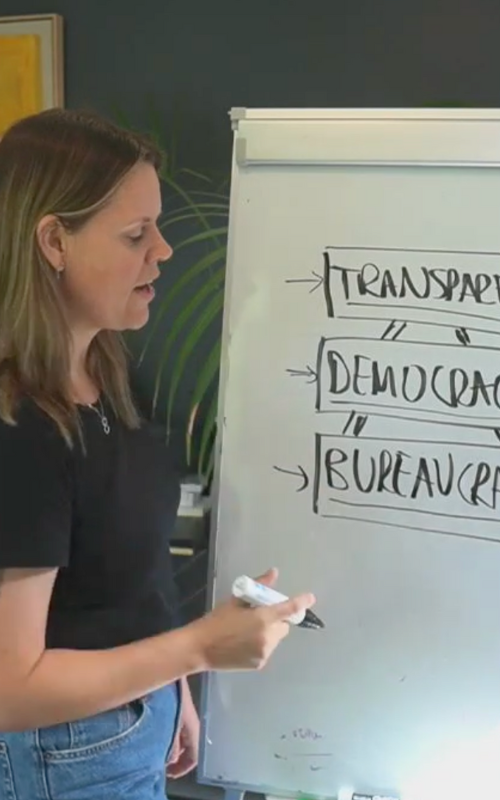 TRANSPAR
DEMOCRAC
BUREAUCRA